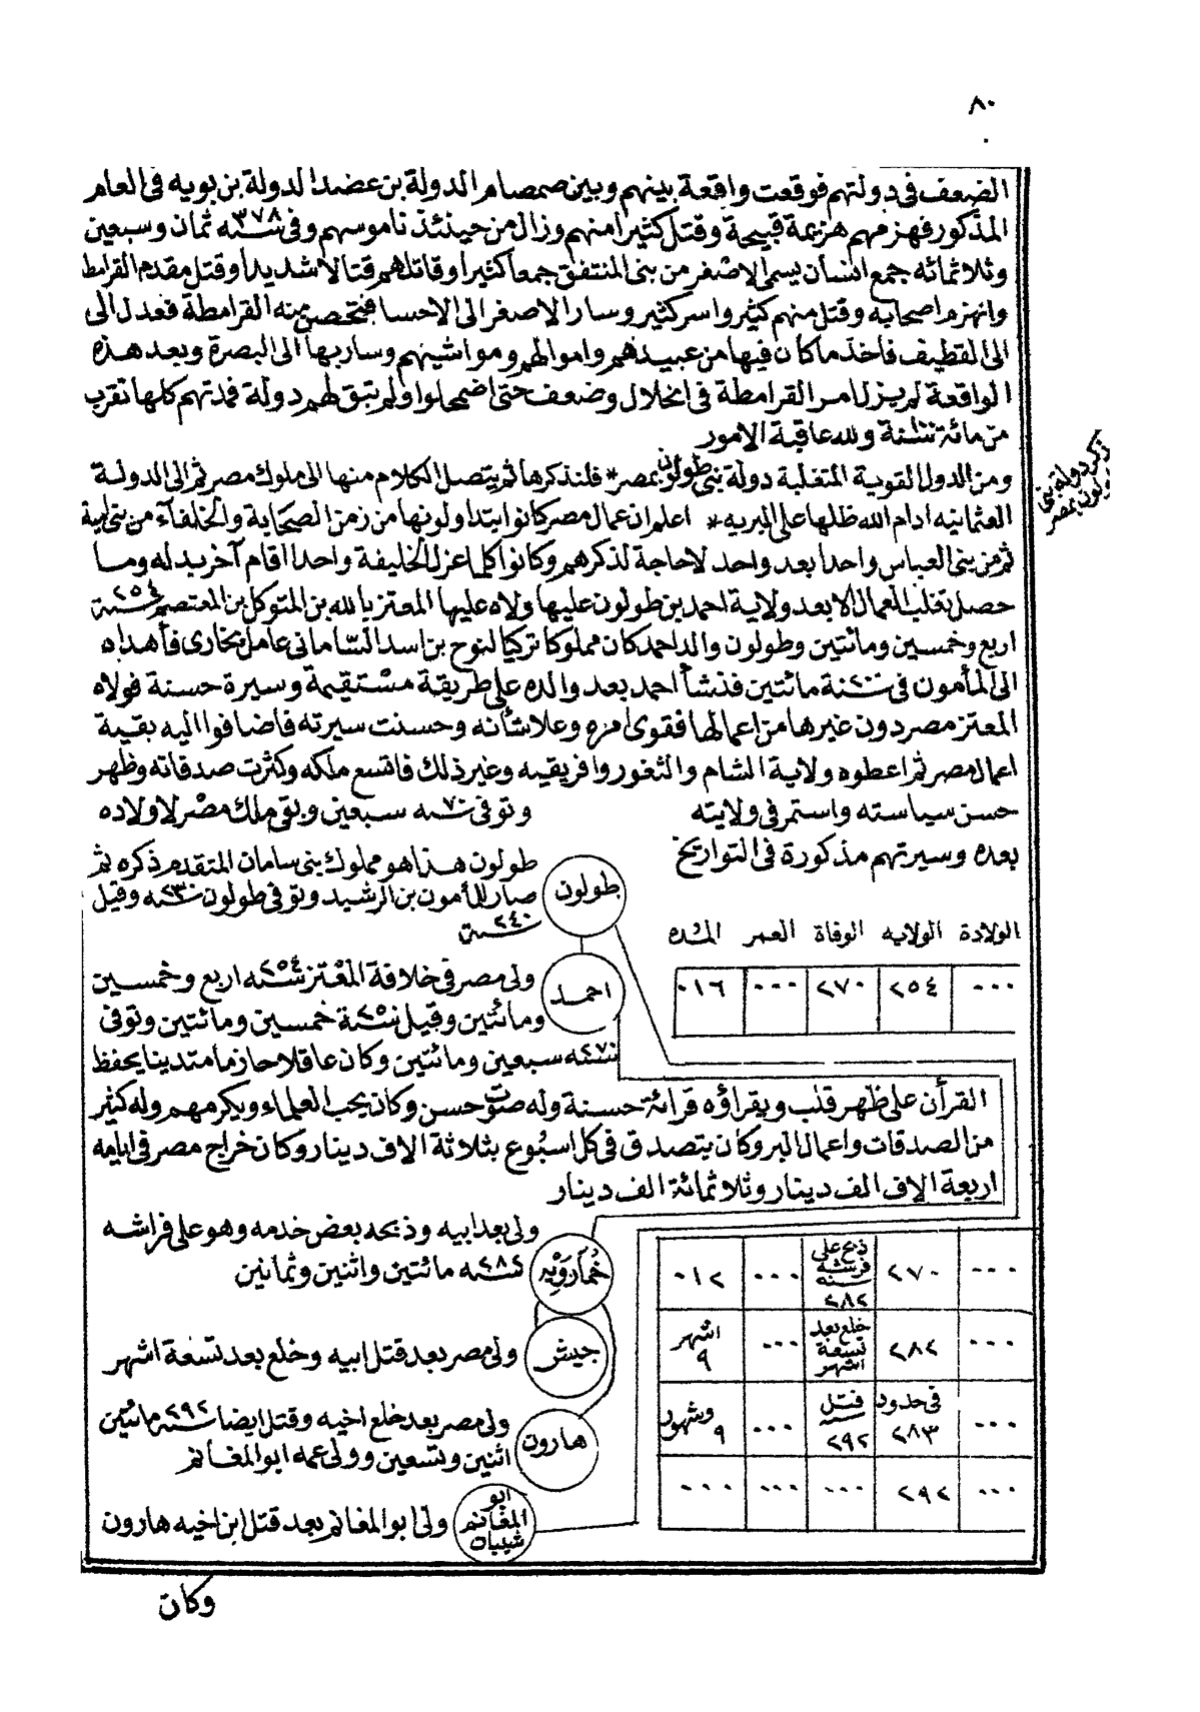 ٨٠
الضعف فى دولتهم فوقعت واقعة بينهم وبين صمصام الدولة بن عضد الدولة بن بويه فى العام
المذكور فهزمهم هزيمة قبيحة وقتل كثيرا منهم وزال من حينئذ ناموسهم وفى سنه ٣٧٨ ثمان وسبعين
وثلاثمائه جمع انسان يسمى الاصفر من بنى المنتفق جمعا كثيرا وقاتلهم قتالا شديدا وقتل مقدم القرامط
وانهزم اصحابه وقتل منهم كثير واسر كثير وسار الاصفر الى الاحسا فتحصن منه القرامطة فعدل الى
الى القطيف فاخذ ما كان فيها من عبيدهم واموالهم ومواشيهم وسار بها الى البصرة وبعد هذه
الواقعة لم يزل امر القرامطة فى انحلال وضعف حتى اضمحلوا ولم تبق لهم دولة فمدتهم كلها تقرب
من مائة سنة ولله عاقبة الامور
ذكر دولة بنى
طولون بمصر
ومن الدول القوية المتغلبة دولة بنى طولون بمصر * فلنذكرها ثم يتصل الكلام منها الى ملوك مصر ثم الى الدولة
العثمانيه ادام الله ظلها على البريه * اعلم ان عمال مصر كانوا يتداولونها من زمن الصحابة والخلفاء من بنى امية
ثم من بنى العباس واحدا بعد واحد لا حاجة لذكرهم وكانوا كلما عزل الخليفة واحدا اقام آخر بدله وما
حصل تغلب العمال الا بعد ولاية احمد بن طولون عليها ولاه عليها المعتز بالله بن المتوكل بن المعتصم سنة ٢٥٤
اربع وخمسين ومائتين وطولون والد احمد كان مملوكا تركيا لنوح بن اسد السامانى عامل بخارى فأهداه
الى المأمون فى سنة ٢٠٠ مائتين فنشأ احمد بعد والده على طريقة مستقيمة وسيرة حسنة فولاه
المعتز مصر دون غيرها من اعمالها فقوى امره وعلا شأنه وحسنت سيرته فاضافوا اليه بقية
اعمال مصر ثم اعطوه ولاية الشام والثغور وافريقيه وغير ذلك فاتسع ملكه وكثرت صدقاته وظهر
حسن سياسته واستمر فى ولايته وتوفى سنه ٧٠ سبعين وبقى ملك مصر لاولاده
بعده وسيرتهم مذكورة فى التواريخ
طولون
طولون هذا هو مملوك بنى سامان المتقدم ذكره ثم
صار للمأمون بن الرشيد وتوفى طولون سنه ٢٣٠ وقيل
سنة ٢٤٠
الولادة الولايه الوفاة العمر المده
٠٠٠ ٢٥٤ ٢٧٠ ٠٠٠ ٠١٦
احمد
ولى مصر فى خلافة المعتز سنه ٢٥٤ اربع وخمسين
ومائتين وقيل سنة ٢٥٠ خمسين ومائتين وتوفى
سنه ٢٧٠ سبعين ومائتين وكان عاقلا حازما متدينا يحفظ
القرأن على ظهر قلب ويقراؤه قرائة حسنة وله صوت حسن وكان يحب العلماء ويكرمهم وله كثير
من الصدقات واعمال البر وكان يتصدق فى كل اسبوع بثلاثة الاف دينار وكان خراج مصر فى ايامه
اربعة الاف الف دينار وثلاثمائة الف دينار
خمارويه
ولى بعد ابيه وذبحه بعض خدمه وهو على فراشه
سنه ٢٨٢ مائتين واثنين وثمانين
٠٠٠ ٢٧٠ ذبح على فرشه سنه ٢٨٢ ٠٠٠ ٠١٢
جيش
ولى مصر بعد قتل ابيه وخلع بعد تسعة اشهر
٠٠٠ ٢٨٢ خلع بعد تسعة اشهر ٠٠٠ اشهر ٩
هارون
ولى مصر بعد خلع اخيه وقتل ايضا سنه ٢٩٢ مائتين
اثنين وتسعين وولى عمه ابو المغانم
٠٠٠ فى حدود ٢٨٣ قتل سنه ٢٩٢ ٠٠٠ وشهور ٩
ابو المغانم شيبان
ولى ابو المغانم بعد قتل ابن اخيه هارون
٠٠٠ ٢٩٢ ٠٠٠ ٠٠٠ ٠٠٠
وكان